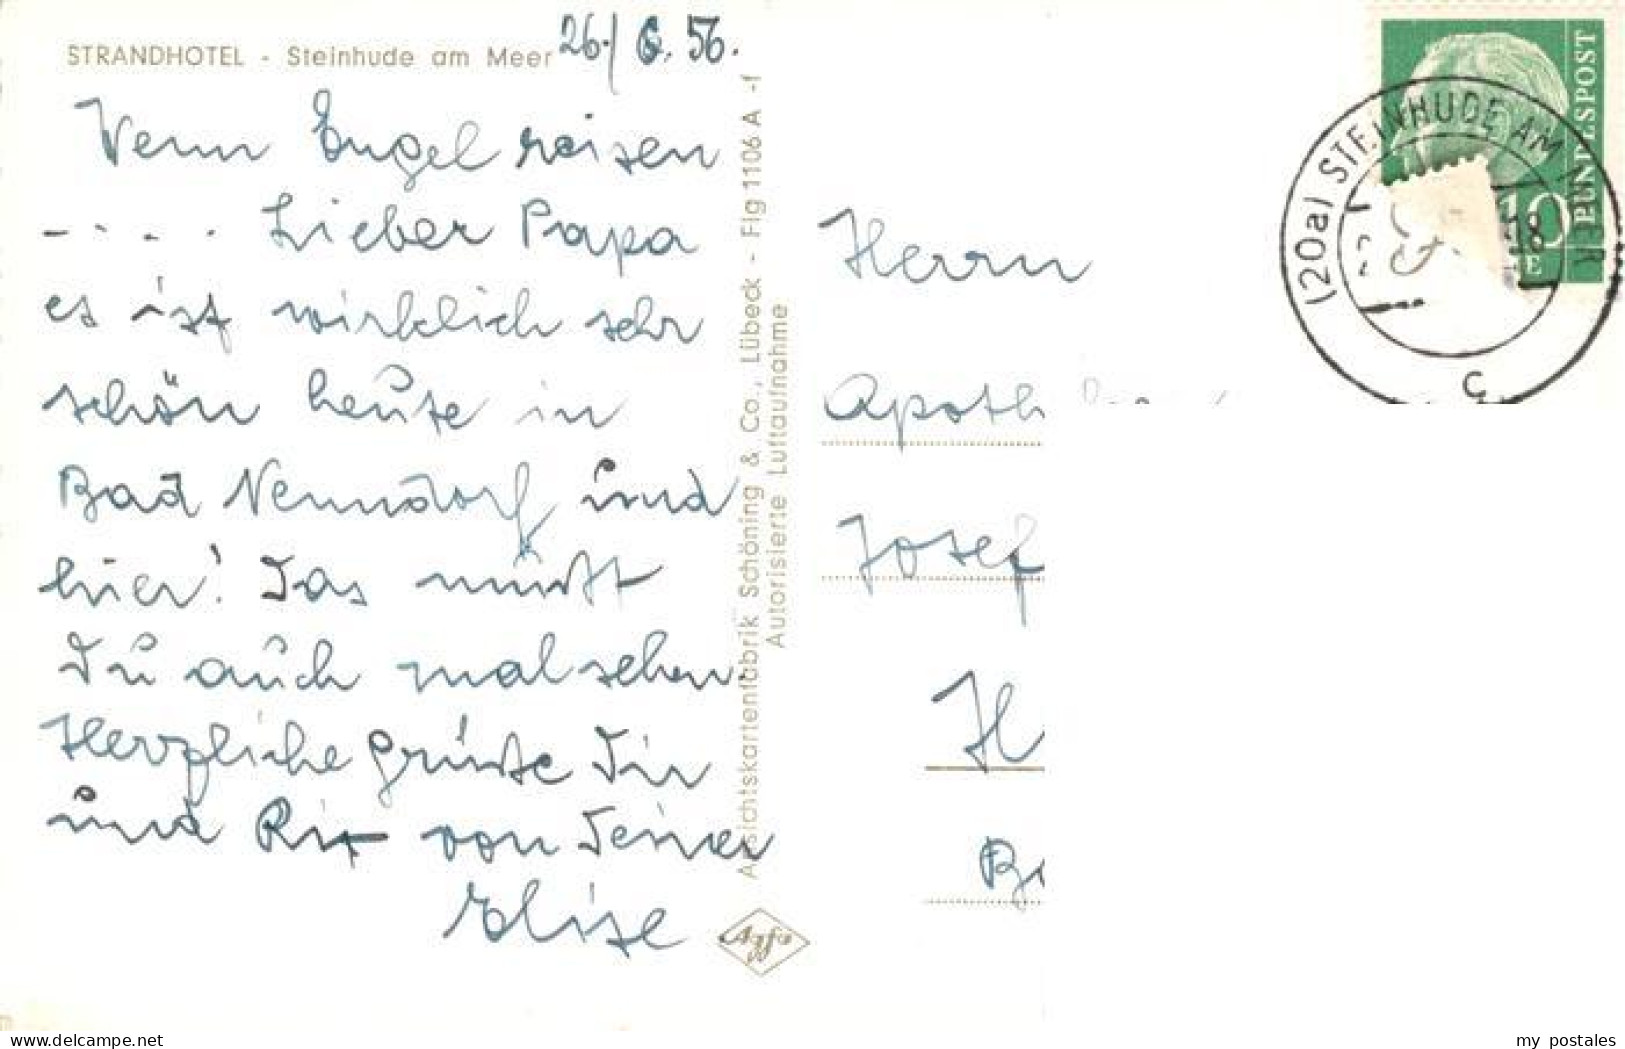 STRANDHOTEL - Steinhude am Meer
26./6. 56.
Wenn Engel reisen
- . . . Lieber Papa
es ist wirklich sehr
schön heute in
Bad Nenndorf und
hier! Das müßt
Du auch mal sehen.
Herzliche Grüße Dir
und Rix von Deiner
Elise
Ansichtskartenfabrik Schöning & Co., Lübeck - Flg 1106 A -f
Autorisierte Luftaufnahme
Agfa
Herrn
Apoth
Josef
H
(20a) STEINHUDE AM MEER
-18
c
10
BUNDESPOST
DEUTSCHE BUNDESPOST
www.delcampe.net
my postales